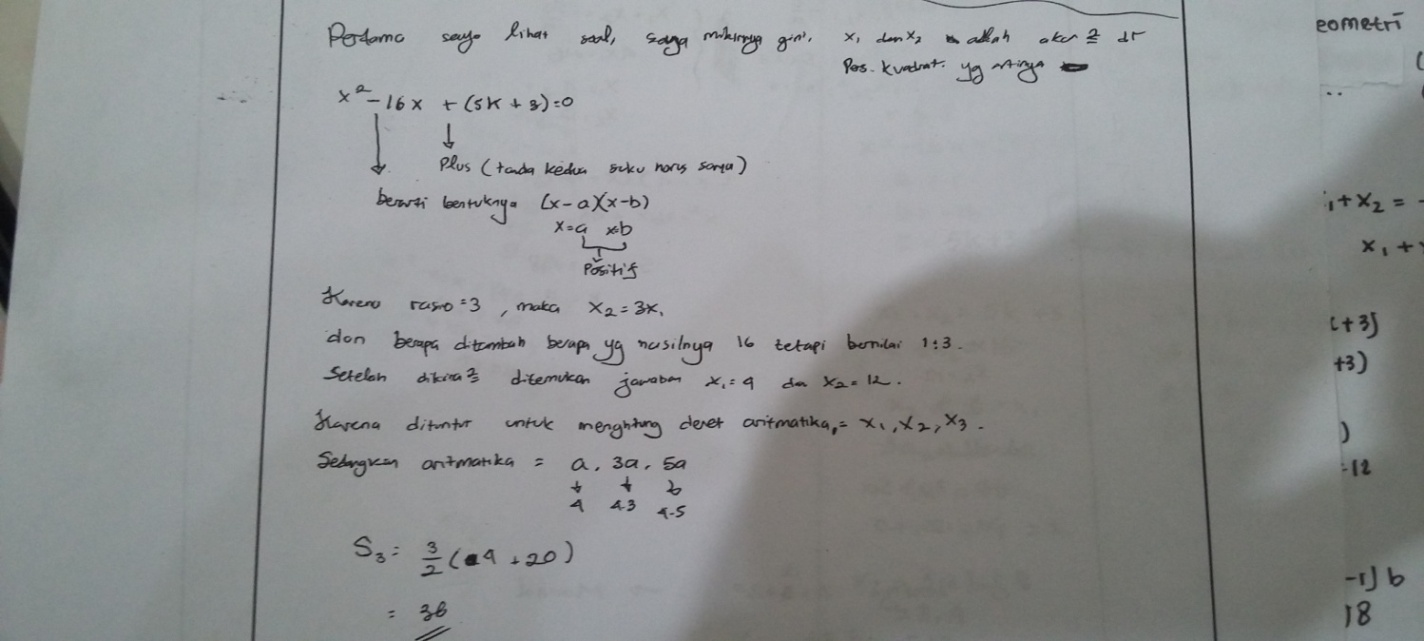 Pertama saya lihat soal, saya mikirnya gini. x₁ dan x₂ adlah akar² dr
Pers. kuadrat. yg artinya
x² - 16x + (5k + 3) = 0
Plus (tanda kedua suku harus sama)
berarti bentuknya (x-a)(x-b)
x=a x=b
Positif
Karena rasio = 3, maka x₂ = 3x₁
dan berapa ditambah berapa yg hasilnya 16 tetapi bernilai 1:3.
Setelah dikira² ditemukan jawaban x₁ = 4 dan x₂ = 12.
Karena dituntut untuk menghitung deret aritmatika, = x₁, x₂, x₃.
Sedangkan aritmatika = a, 3a, 5a
4 4.3 4.5
S₃ = 3/2 (4 + 20)
= 36
eometri
..
₁+x₂ = -
x₁ +
(+3)
+3)
)
-12
-1) b
18